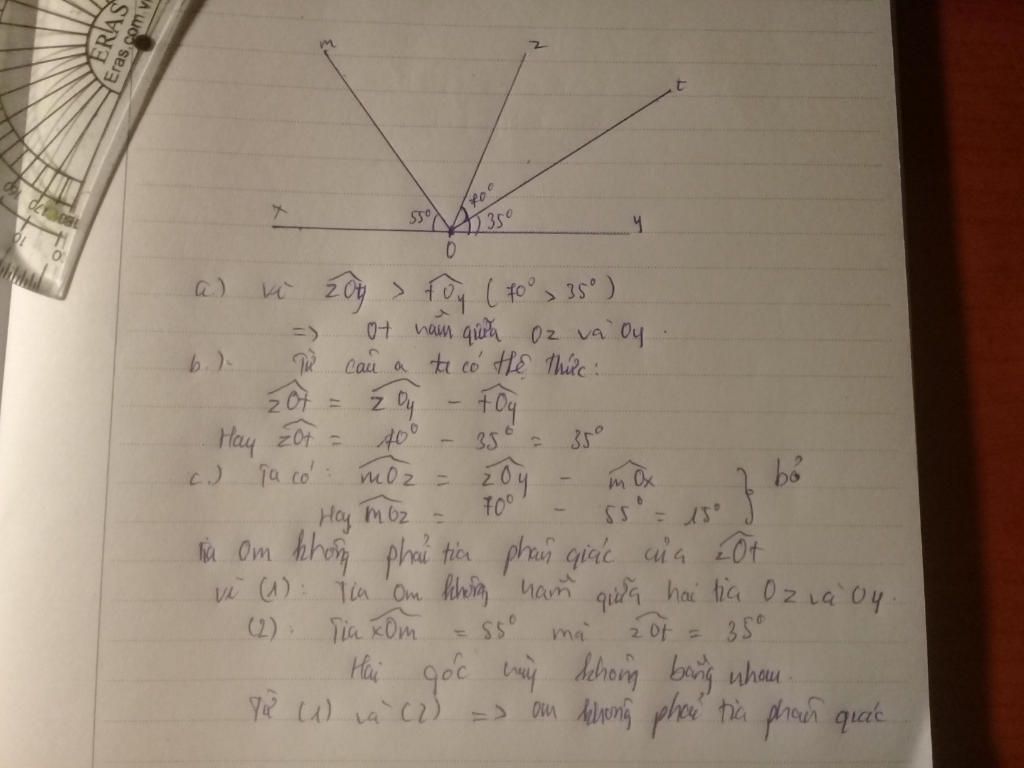 ERAS
Eras.com.vn
m z t
x 55° 70° 35° y
O
a.) vì zOy > tOy (70° > 35°)
=> Ot nằm giữa Oz và Oy.
b.). Từ câu a ta có hệ thức:
zOt = zOy - tOy
Hay zOt = 70° - 35° = 35°
c.) Ta có: mOz = zOy - mOx } bỏ
Hay mOz = 70° - 55° = 15°
Tia Om không phải tia phân giác của zOt
vì (1): Tia Om không nằm giữa hai tia Oz và Oy.
(2): Tia xOm = 55° mà zOt = 35°
Hai góc này không bằng nhau.
Từ (1) và (2) => Om không phải tia phân giác